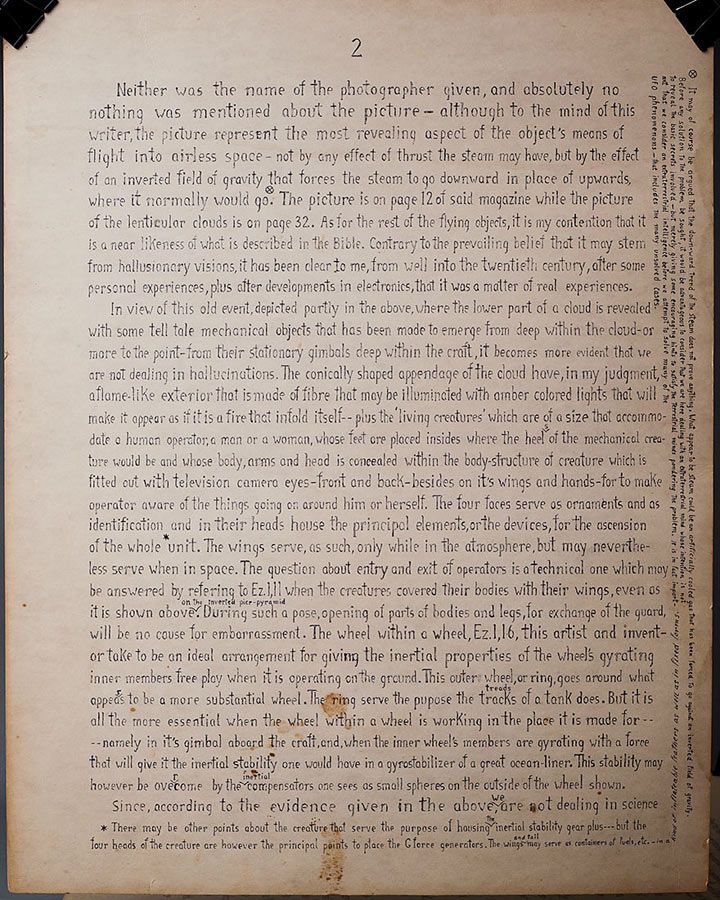 2
Neither was the name of the photographer given, and absolutely no
nothing was mentioned about the picture – although to the mind of this
writer, the picture represent the most revealing aspect of the object's means of
flight into airless space - not by any effect of thrust the steam may have, but by the effect
of an inverted field of gravity that forces the steam to go downward in place of upwards,
where it normally would go.⊗ The picture is on page 12 of said magazine while the picture
of the lenticular clouds is on page 32. As for the rest of the flying objects, it is my contention that it
is a near likeness of what is described in the Bible. Contrary to the prevailing belief that it may stem
from hallusionary visions, it has been clear to me, from well into the twentieth century, after some
personal experiences, plus after developments in electronics, that it was a matter of real experiences.
In view of this old event, depicted partly in the above, where the lower part of a cloud is revealed
with some tell tale mechanical objects that has been made to emerge from deep within the cloud - or
more to the point - from their stationary gimbals deep within the craft, it becomes more evident that we
are not dealing in hallucinations. The conically shaped appendage of the cloud have, in my judgment,
a flame-like exterior that is made of fibre that may be illuminated with amber colored lights that will
make it appear as if it is a fire that infold itself -- plus the 'living creatures' which are of a size that accommo-
date a human operator, a man or a woman, whose feet are placed insides where the heels of the mechanical crea-
ture would be and whose body, arms and head is concealed within the body-structure of creature which is
fitted out with television camera eyes - front and back - besides on its wings and hands - for to make
operator aware of the things going on around him or herself. The four faces serve as ornaments and as
identification and in their heads house the principal elements, or the devices, for the ascension
of the whole *unit. The wings serve, as such, only while in the atmosphere, but may neverthe-
less serve when in space. The question about entry and exit of operators is a technical one which may
be answered by refering to Ez.1,11 when the creatures covered their bodies with their wings, even as
on the inverted pice-pyramid
it is shown above. During such a pose, opening of parts of bodies and legs, for exchange of the guard,
will be no cause for embarrassment. The wheel within a wheel, Ez.1,16, this artist and invent-
or take to be an ideal arrangement for giving the inertial properties of the wheel's gyrating
inner members free play when it is operating on the ground. This outer wheel, or ring, goes around what
appears to be a more substantial wheel. The ring serve the pupose the tracks treads of a tank does. But it is
all the more essential when the wheel within a wheel is working in the place it is made for --
-- namely in it's gimbal aboard the craft, and, when the inner wheel's members are gyrating with a force
that will give it the inertial stability one would have in a gyrostabilizer of a great ocean-liner. This stability may
however be overcome by the inertial compensators one sees as small spheres on the outside of the wheel shown.
Since, according to the evidence given in the above, we are not dealing in science
* There may be other points about the creature that serve the purpose of housing the inertial stability gear plus --- but the
four heads of the creature are however the principal points to place the G force generators. The wings and tail may serve as containers of fuels, etc. - in a
⊗ It may of course be argued that the downward trend of the steam does not prove anything. What appear to be steam could be an artificially cooled gas that has been forced to go against an inverted field of gravity.
Before any solution to the problem be sought, it would be advantageous to consider that we are here dealing with an extraterrestrial mind whose intention is not
to reveal the basic secrets involved - but merely giving some encouraging hints to satisfy the terrestrial minds pondering the problem. It is in fact import-
ant that we consider an extraterrestrial intelligence before we attempt to solve many of the
UFO phenomenons - that includes the many involved cases.